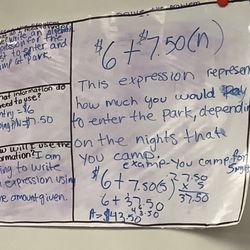 write an
person for the
st to enter and
at park.
at information do
need to use?
$7.50
will I use the
ormation? I am
ing to write
expression using
e amount given.
$6 + $7.50(n)
This expression represen
how much you would pay
to enter the park, dependin
on the nights that
you camp.
example- You camp for 5
nights
$6 + 7.50(5)
6 + 37.50
A> $43.50
7.50
x 5
37.50